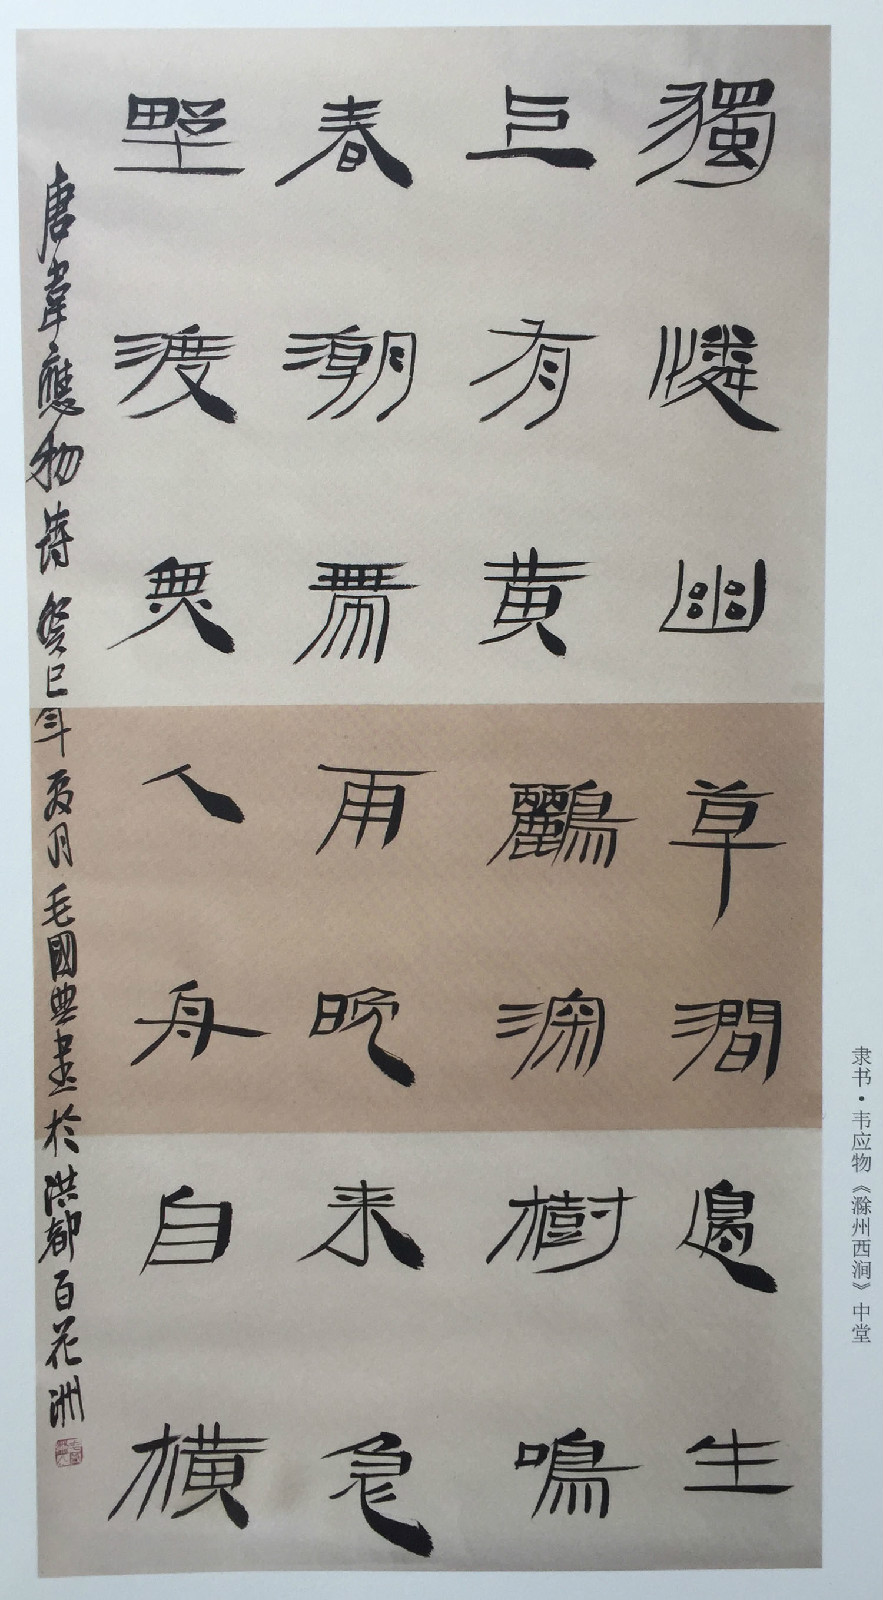 獨憐幽草澗邊生
上有黄鸝深樹鳴
春潮帶雨晚来急
野渡無人舟自橫
唐韋應物詩 癸巳年夏月 毛國典書於洪都百花洲
隶书·韦应物《滁州西涧》中堂